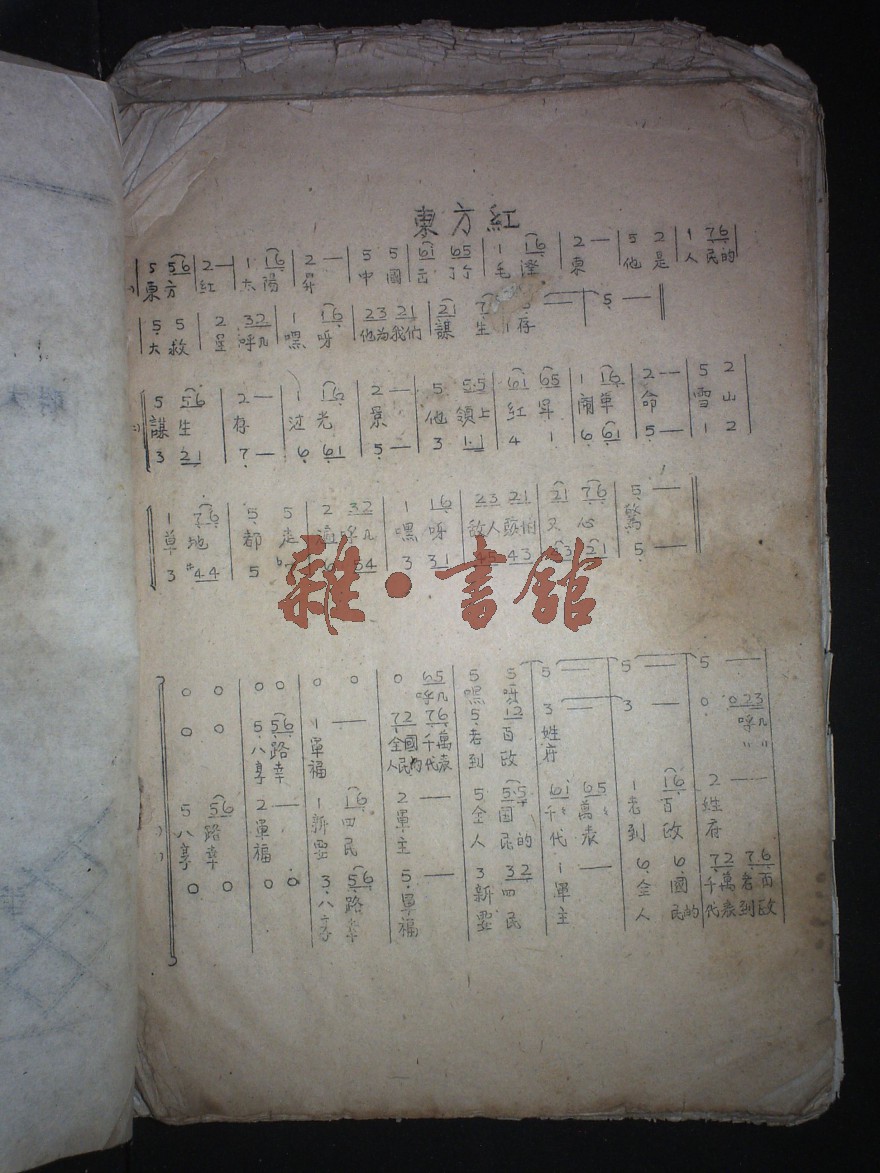 東方紅
5 56 2 — 1 16 2 — 5 5 61 65 1 16 2 — 5 2 1 76
東方 紅 太陽 昇 中國出了个 毛澤東 他是人民的
5 5 2 32 1 16 23 21 21 7 — 5 —
大救星呼几嘿呀他为我们謀生存
5 56 2 — 1 16 2 — 5 55 61 65 1 16 2 — 5 2
謀生存 过光景 他領上紅軍鬧革命 雪山
3 21 7 — 6 61 5 — 3 11 4 1 6 61 5 — 1 2
1 76 5 5 2 32 1 16 23 21 21 76 5 —
草地都走遍呼几嘿呀敌人 又心驚
3 #44 5 54 3 31 43 21 5 —
雜·書館
0 0 0 0 0 0 0 65 5 5 5 — 5 — 5 —
呼几嘿呀
0 0 5 56 1 — 72 76 5 12 3 — 3 — 0 023
八路軍 全國千萬老百姓 呼几
享幸福 人民的代表到政府 〃 〃
5 56 2 — 1 16 2 — 5 55 61 65 1 16 2 —
八路軍 新四軍 全國千千萬萬老百姓
享幸福 民主 人民的代表到政府
0 0 0 0 3 56 5 — 3 32 1 — 6 6 72 76
八路軍 新四軍 全國千萬老百
享幸福 民主 人民的代表到政